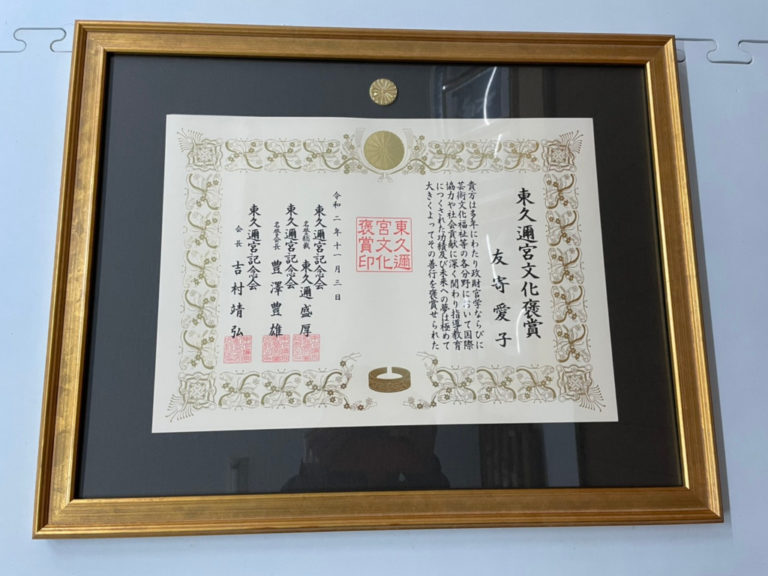 東久邇宮文化褒賞
友寄愛子
貴方は多年にわたり政財官学ならびに
芸術文化福祉等の各分野において国際
協力や社会貢献に深く関わり指導教育
につくされた功績及び未来への夢は極めて
大きくよってその善行を褒賞せられた
東久邇
宮文化
褒賞印
令和二年十一月三日
東久邇宮記念会
名誉総裁 東久邇盛厚
東久邇宮記念会
名誉会長 豊澤豊雄
東久邇宮記念会
会長 吉村靖弘